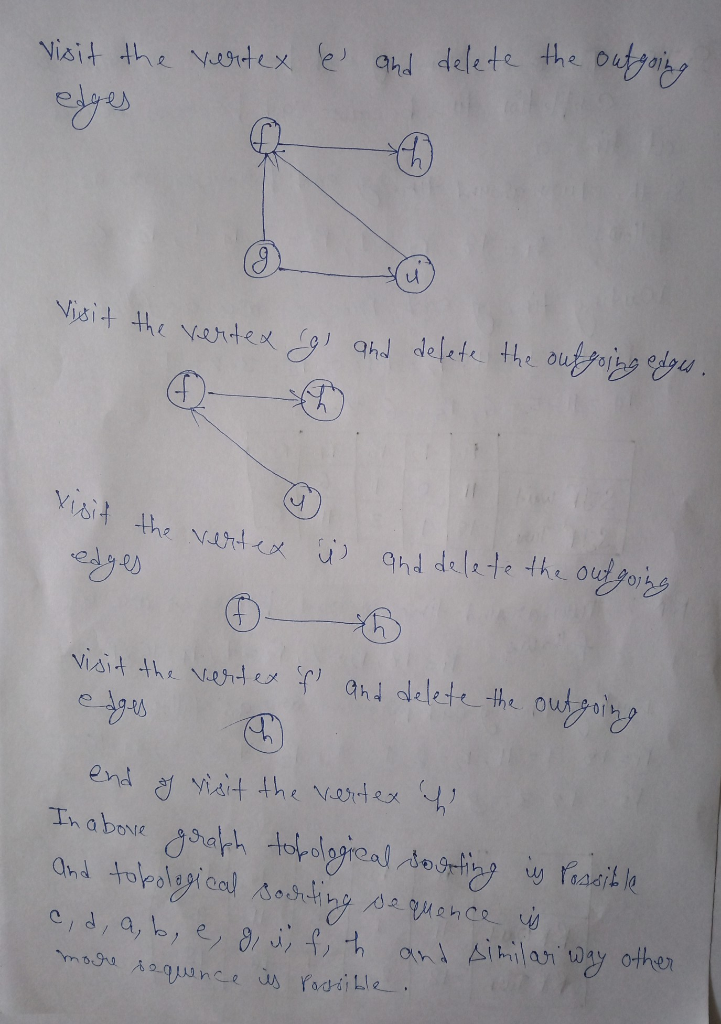 Visit the vertex 'e' and delete the outgoing
edges
f
h
g
i
Visit the vertex 'g' and delete the outgoing edges.
f
h
i
Visit the vertex 'i' and delete the outgoing
edges
f
h
visit the vertex 'f' and delete the outgoing
edges
h
end of visit the vertex 'h'
In above graph topological sorting is Possible
and topological sorting sequence is
c, d, a, b, e, g, i, f, h and similar way other
more sequence is Possible.